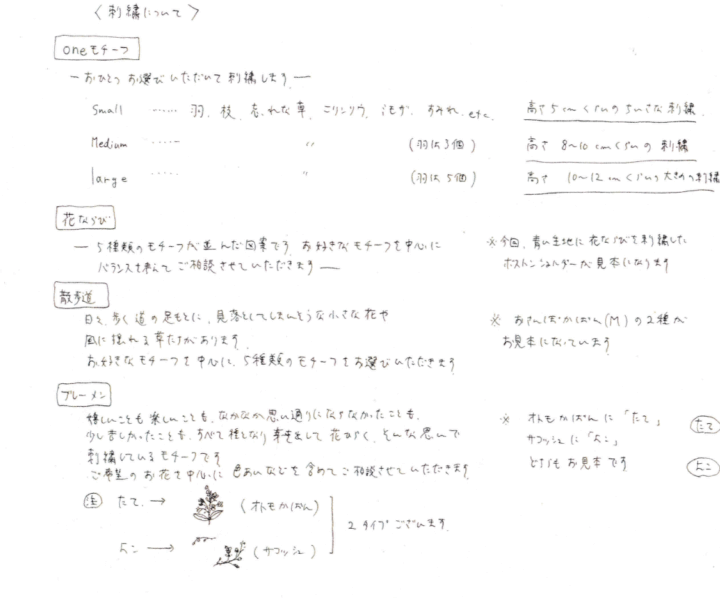 〈刺繍について〉
oneモチーフ
ーおひとつお選びいただいて刺繍しますー
Small …… 羽、枝、忘れな草、こりンリウ、ミモザ、すみれ、etc. 高さ5cmくらいの小さな刺繍
Medium …… 〃 (羽は3個) 高さ 8〜10cmくらいの刺繍
large …… 〃 (羽は5個) 高さ 10〜12cmくらいの大きめの刺繍
花ならび
ー 5種類のモチーフが並んだ図案です お好きなモチーフを中心に ※今回、青い生地に花ならびを刺繍した
バランスを考えてご相談させていただきますー ボストンショルダーが見本になります
散歩道
日々、歩く道の足もとに、見落としてしまいそうな小さな花や ※ おさんぽかばん(M)の2種が
風に揺れる草たちがあります。 お見本になっています
お好きなモチーフを中心に、5種類のモチーフをお選びいただきます
ブレーメン
嬉しいことも楽しいことも、なかなか思い通りにならなかったことも、 ※ オトモかばんに「たて」 たて
少し悲しかったことも、すべて種となり芽を出して花がさく、そんな思いで サコッシュに「よこ」
刺繍しているモチーフです どちらもお見本です よこ
ご希望のお花を中心に色あいなどを含めてご相談させていただきます。
注 たて → (オトモかばん)
2タイプございます。
よこ → (サコッシュ)